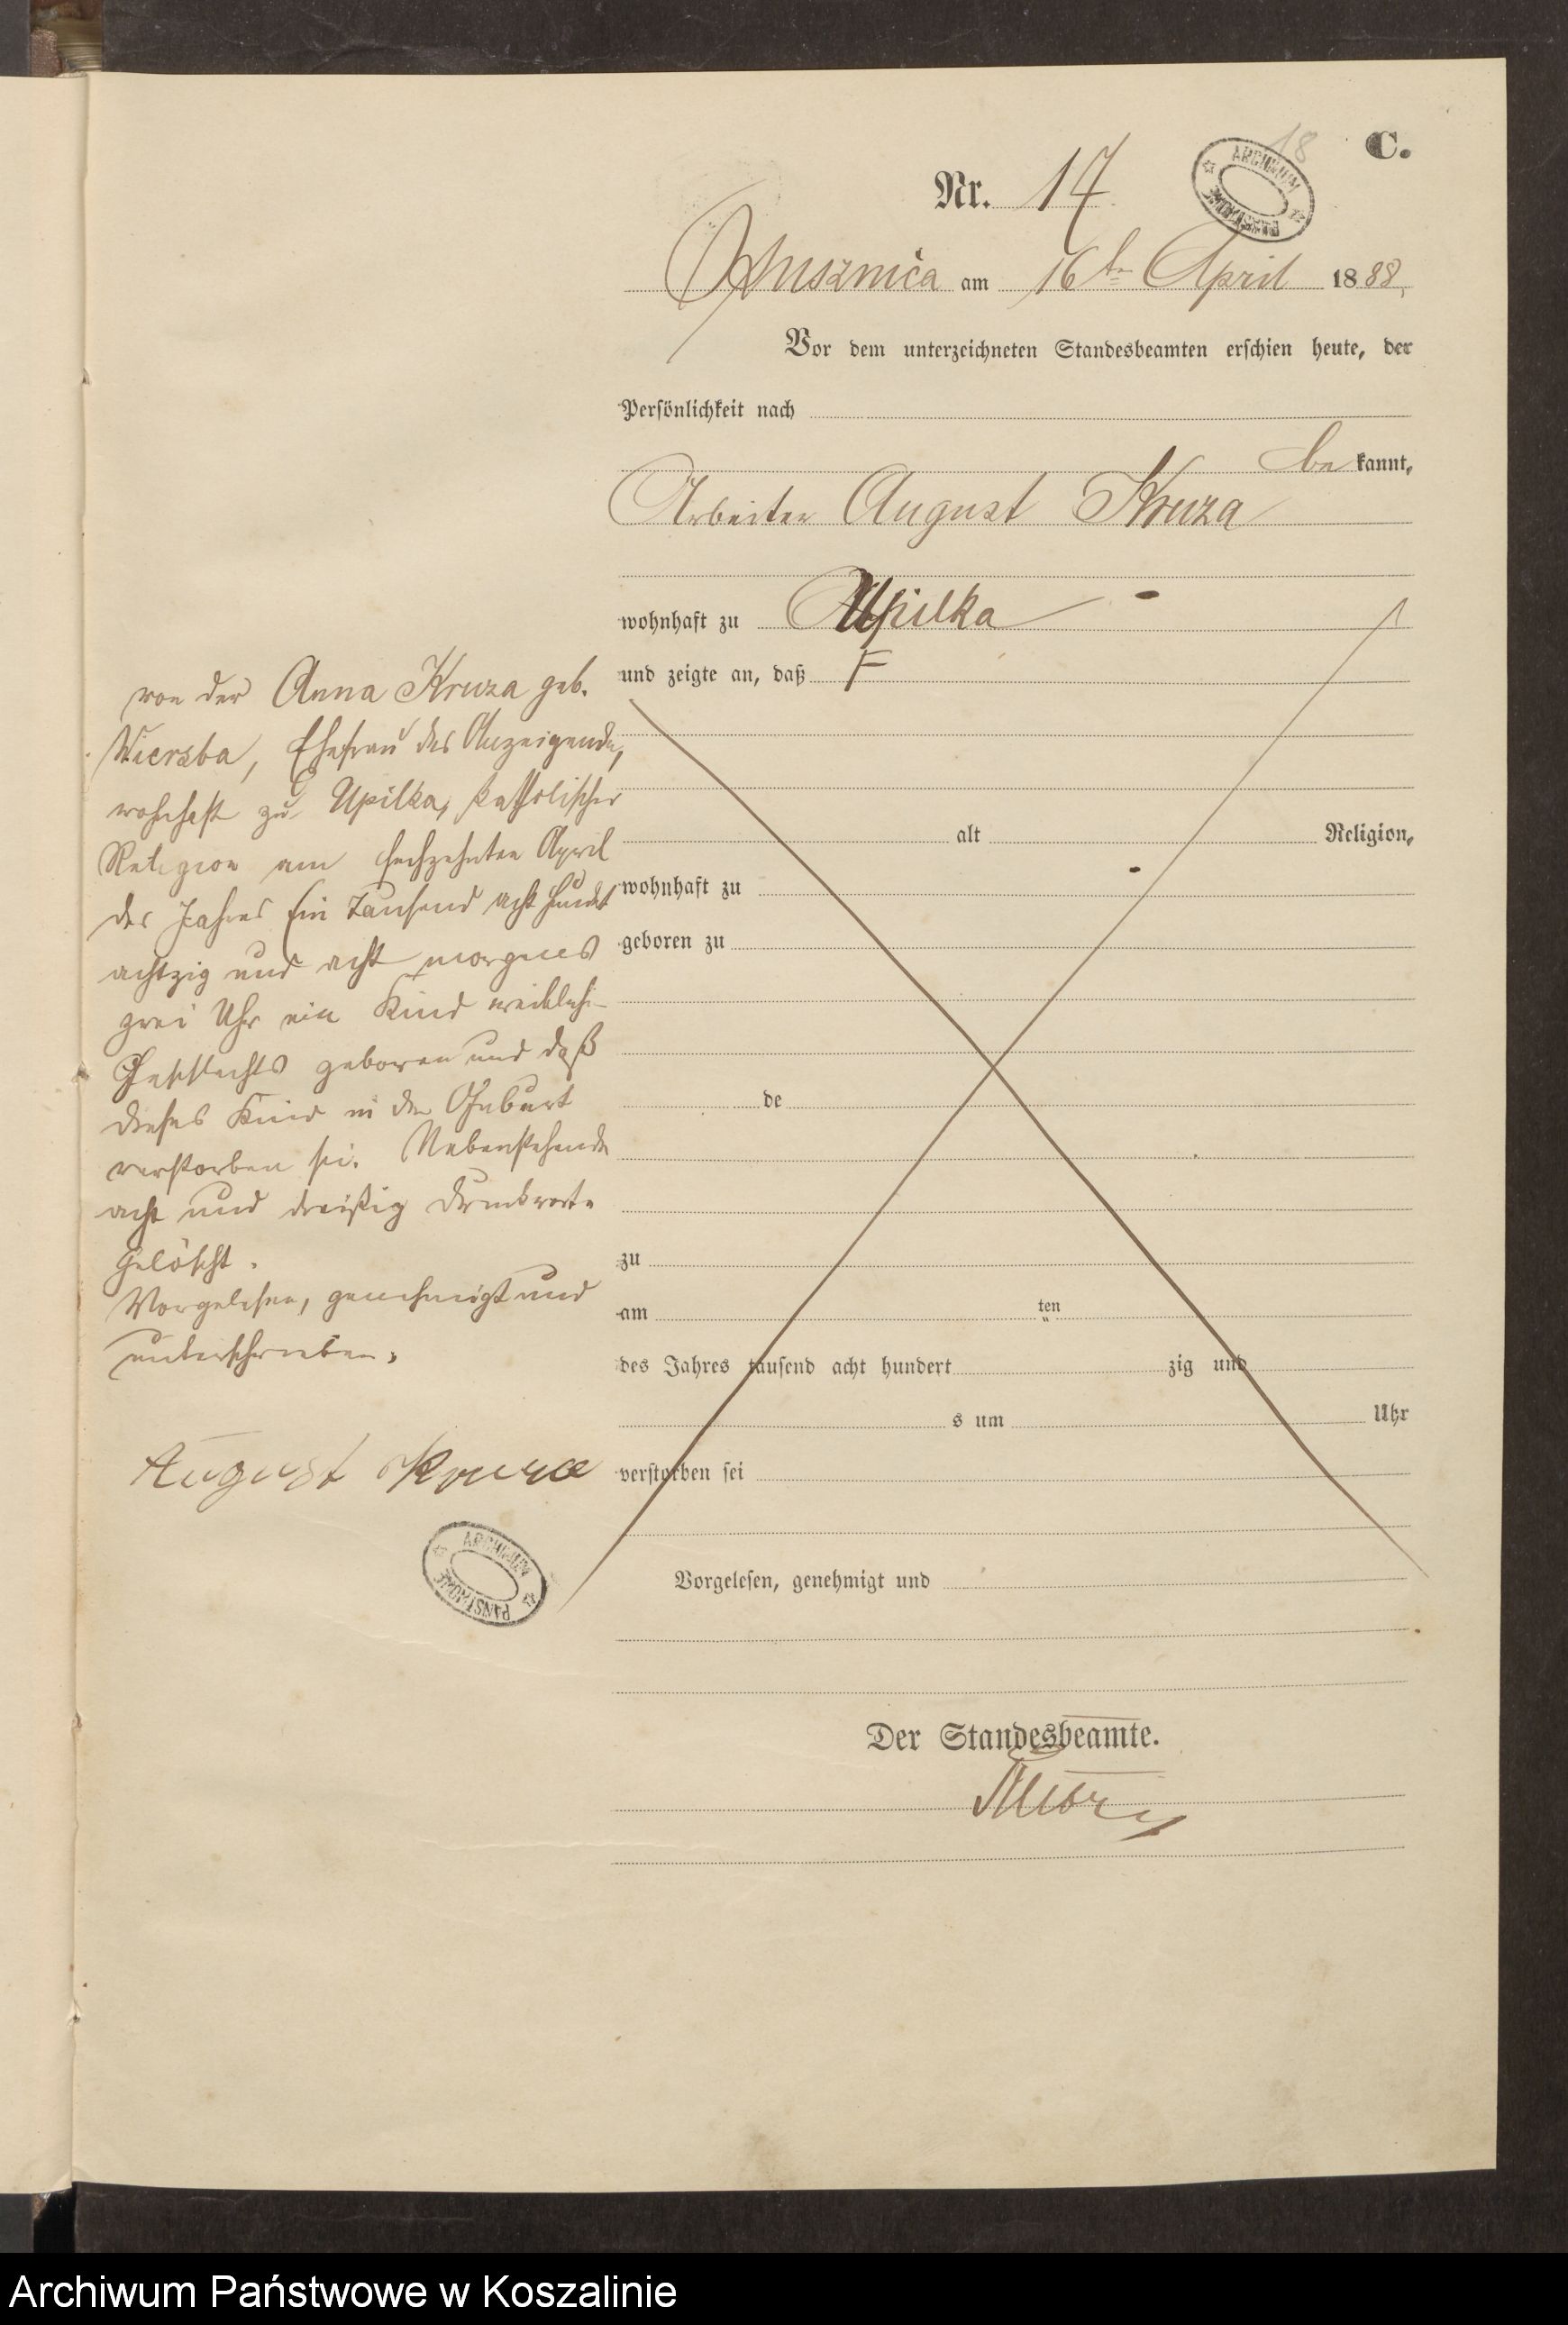 18
C.
Nr. 17
ARCHIWUM PAŃSTWOWE
Oslusznica am 16ten April 1888,
Vor dem unterzeichneten Standesbeamten erschien heute, der
Persönlichkeit nach
be kannt,
Arbeiter August Kruza
wohnhaft zu Upilka
und zeigte an, daß F
alt Religion,
wohnhaft zu
geboren zu
de
zu
am ten
des Jahres tausend acht hundert zig und
s um Uhr
verstorben sei
Vorgelesen, genehmigt und
Der Standesbeamte.
von der Anna Kruza geb.
Wiersba, Ehefrau des Anzeigende,
wohnhaft zu Upilka, katholischer
Religion am sechzehnten April
des Jahres Ein Tausend acht hundert
achtzig und acht morgens
zwei Uhr ein Kind weiblichen
Geschlechts geboren und daß
dieses Kind in der Geburt
verstorben sei. Nebenstehende
acht und dreißig Druckworte
gelöscht.
Vorgelesen, genehmigt und
unterschrieben.
August Kruza
ARCHIWUM PAŃSTWOWE
Archiwum Państwowe w Koszalinie